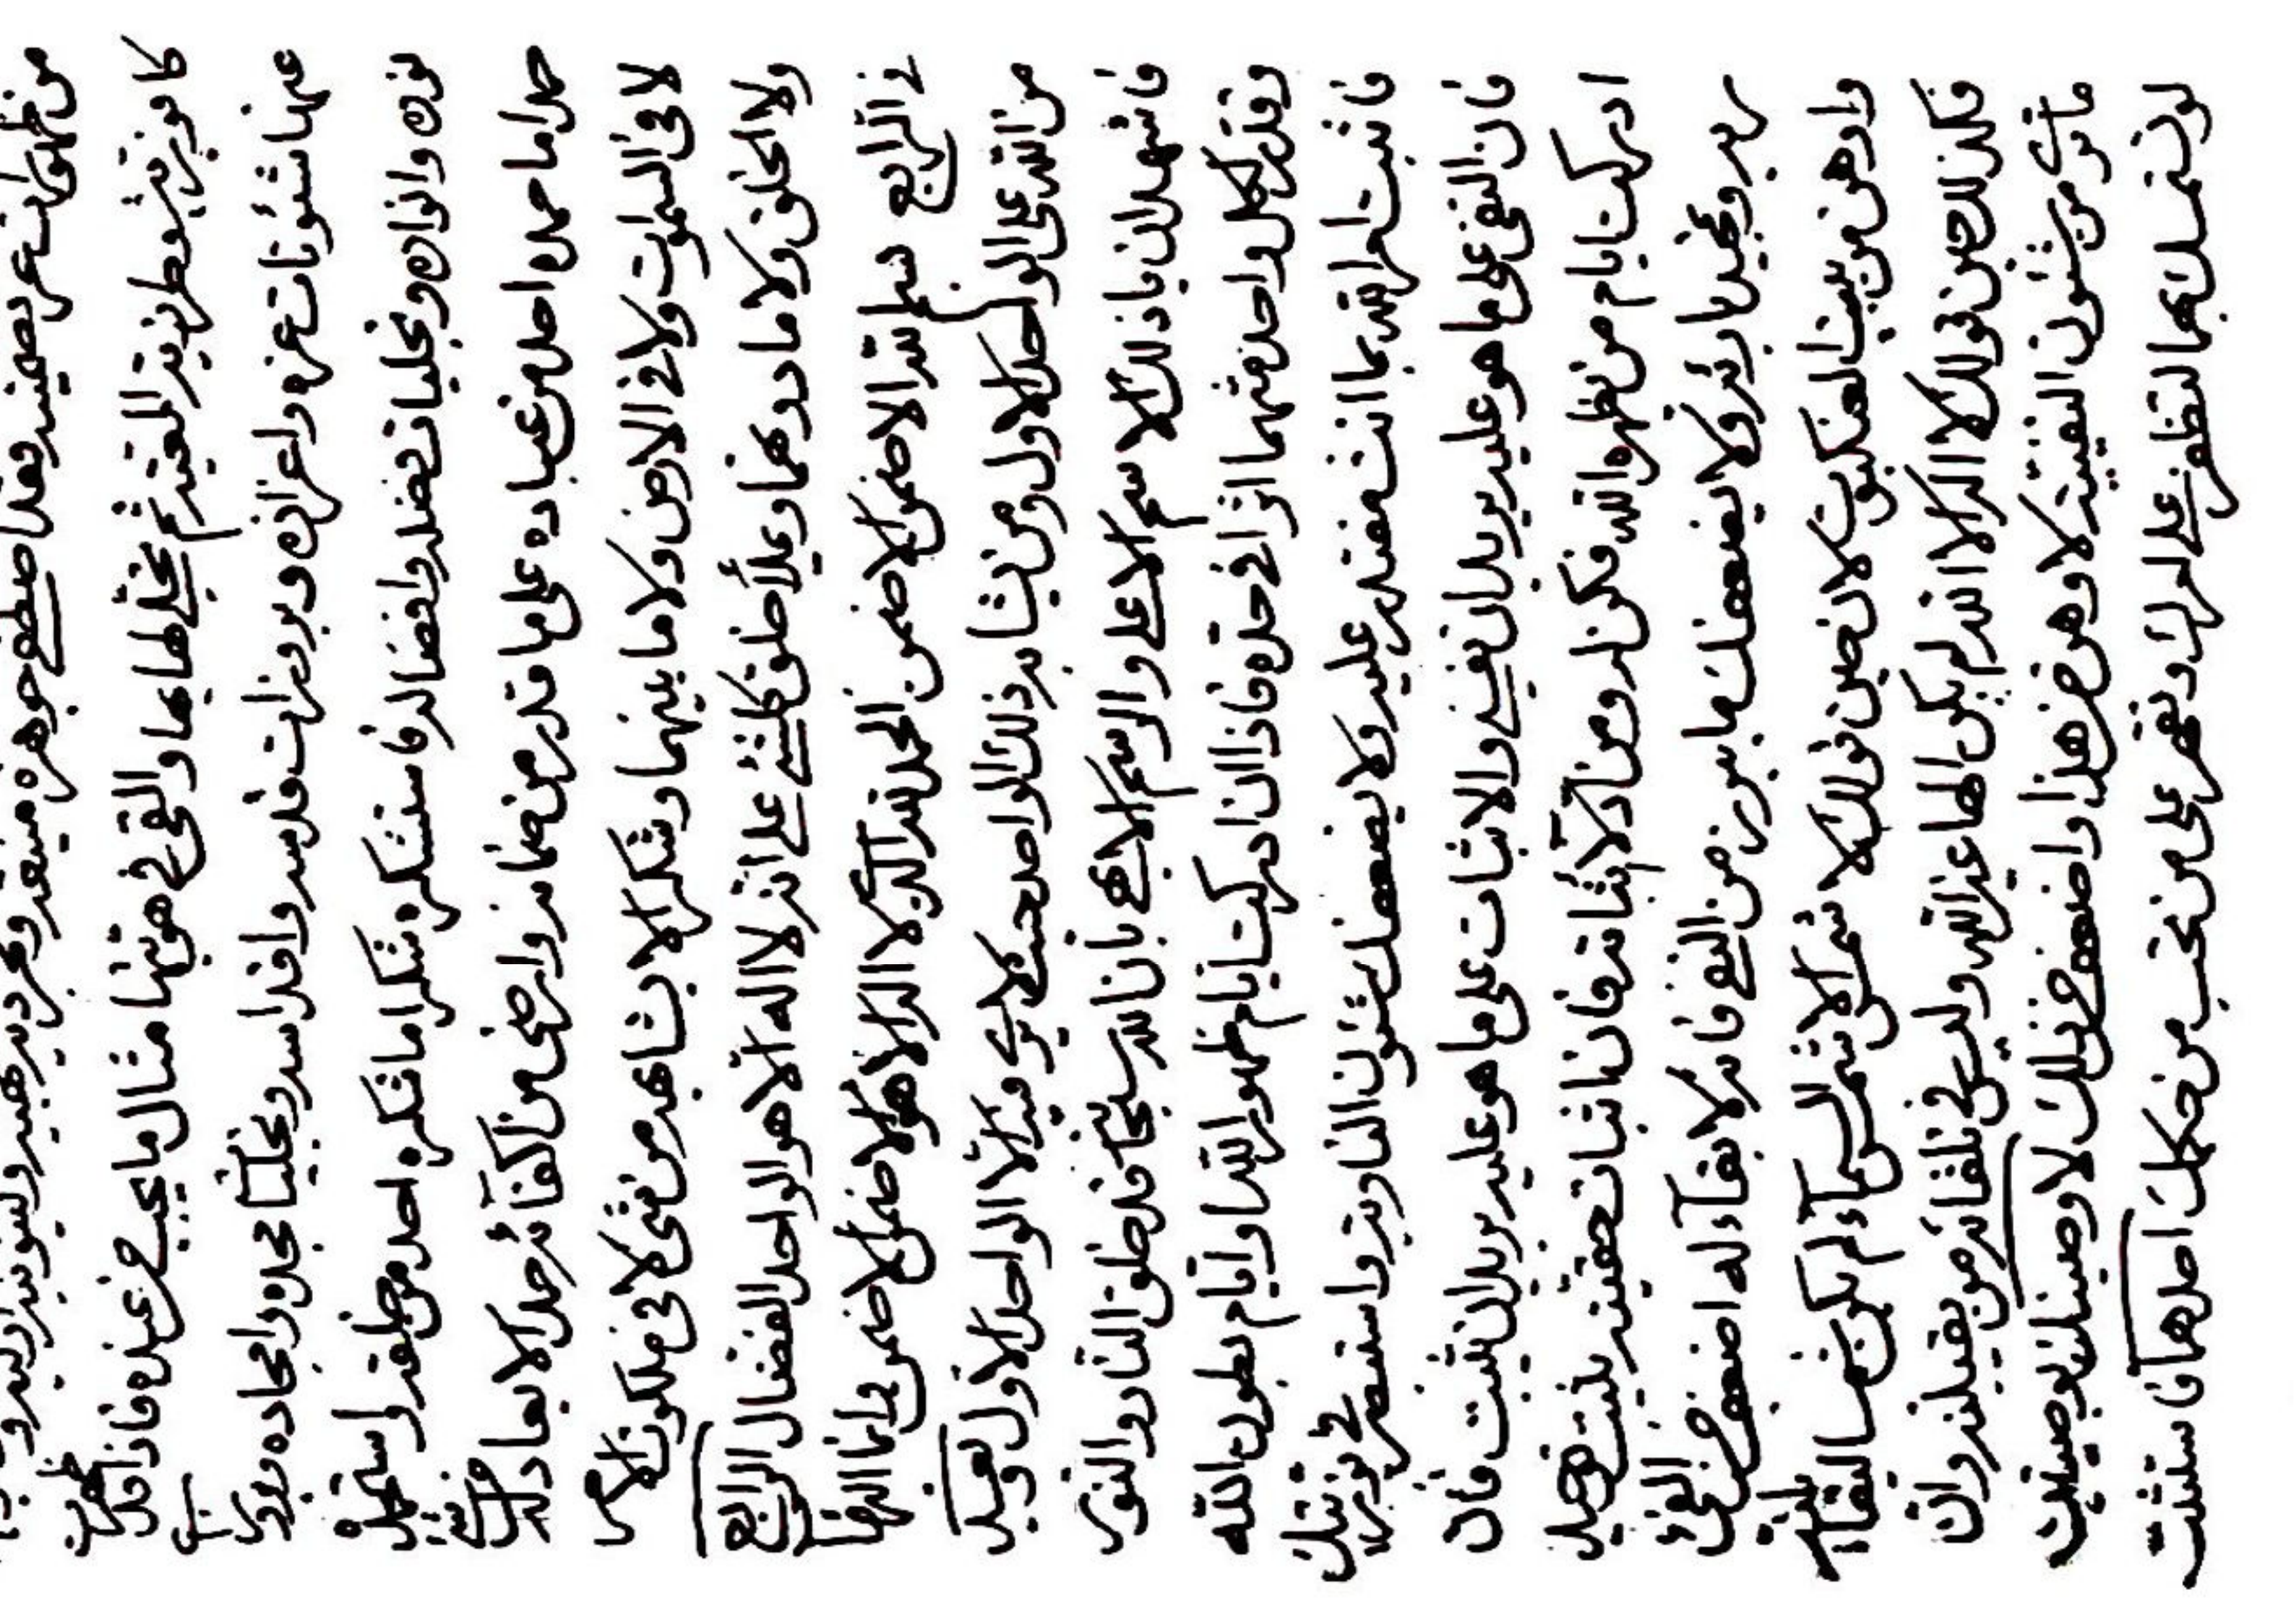 من ظهورات عز صمديته فقد اصطفى جوهرة منيعة ومجردية رهيبة
كافورية شعطرنية المقتدرة ثم تجلى لها بها والقى في هويتها مثال ما يحب من عنده فاذا قد ظهرت
عنها شئونات عزه واعزازه وبروزات قدسه واقداسه وتجليات مجده وامجاده
نوره وانواره وتجليات فضله وافضاله فاستشكره شكرا ما شكره احد من خلقه واستحمده
حمدا ما حمده احد من عباده على ما قدر من ضمانه وارتضى من اكفائه حمدا لا يعادله من شئ
لا في السموات ولا في الارض ولا ما بينهما وشكرا لا يشابهه من شئ لا في ملكوت الامر
ولا الخلق ولا ما دونهما وعلا خلق كلشئ على انه لا اله الا هو الواحد الفضال الرابع
في الرابع بسم الله الاضمن الاضمن الحمد لله الذي لا اله الا هو الاضمن الاضمن وانما البهاء
من الله على الواحد الاول ومن يشابه ذلك الواحد حيث لا يرى فيه الا الواحد الاول وبعد
فاشهد ان الاسم الاعلى والرسم الابهى بان الله سبحانه قد خلق النار والنور
وقدر لكل واحد منهما اثرا في حده فاذا ان ادركت ايام ظهور الله او ايام بطون الله
فاثبت امر الله بما انت مقتدر عليه ولا يضعفك شئون النارية واستنصر في
فان النفي على ما هو عليه يريد ان يفني والاثبات على ما هو عليه يريد ان يثبت فان
ادركت ايام من يظهره الله فكن له ومن ادلاء اثباته فان اثبات حقيته يثبت توحيد
ربه وتمجيد بارئه ولا يضعفك ما يبرز من النفي فانه لا بقاء له اضعف من النفي
واوهن من بيت العنكبوت لان حين قولك لا شمس الا شمس السماء لم يكن شمسا
فكذلك حين قولك لا اله الا الله لم يكن الها غير الله وليس في تلقائه من يقبله وان
ما ترى من شئون النفيية لاوهن من هذا واضعف من ذلك لاوصينك بوصيتين
لو تستمسك بهما لتظفر على امرك وتقهر على من تحب من حكمك احدهما فاستثبت